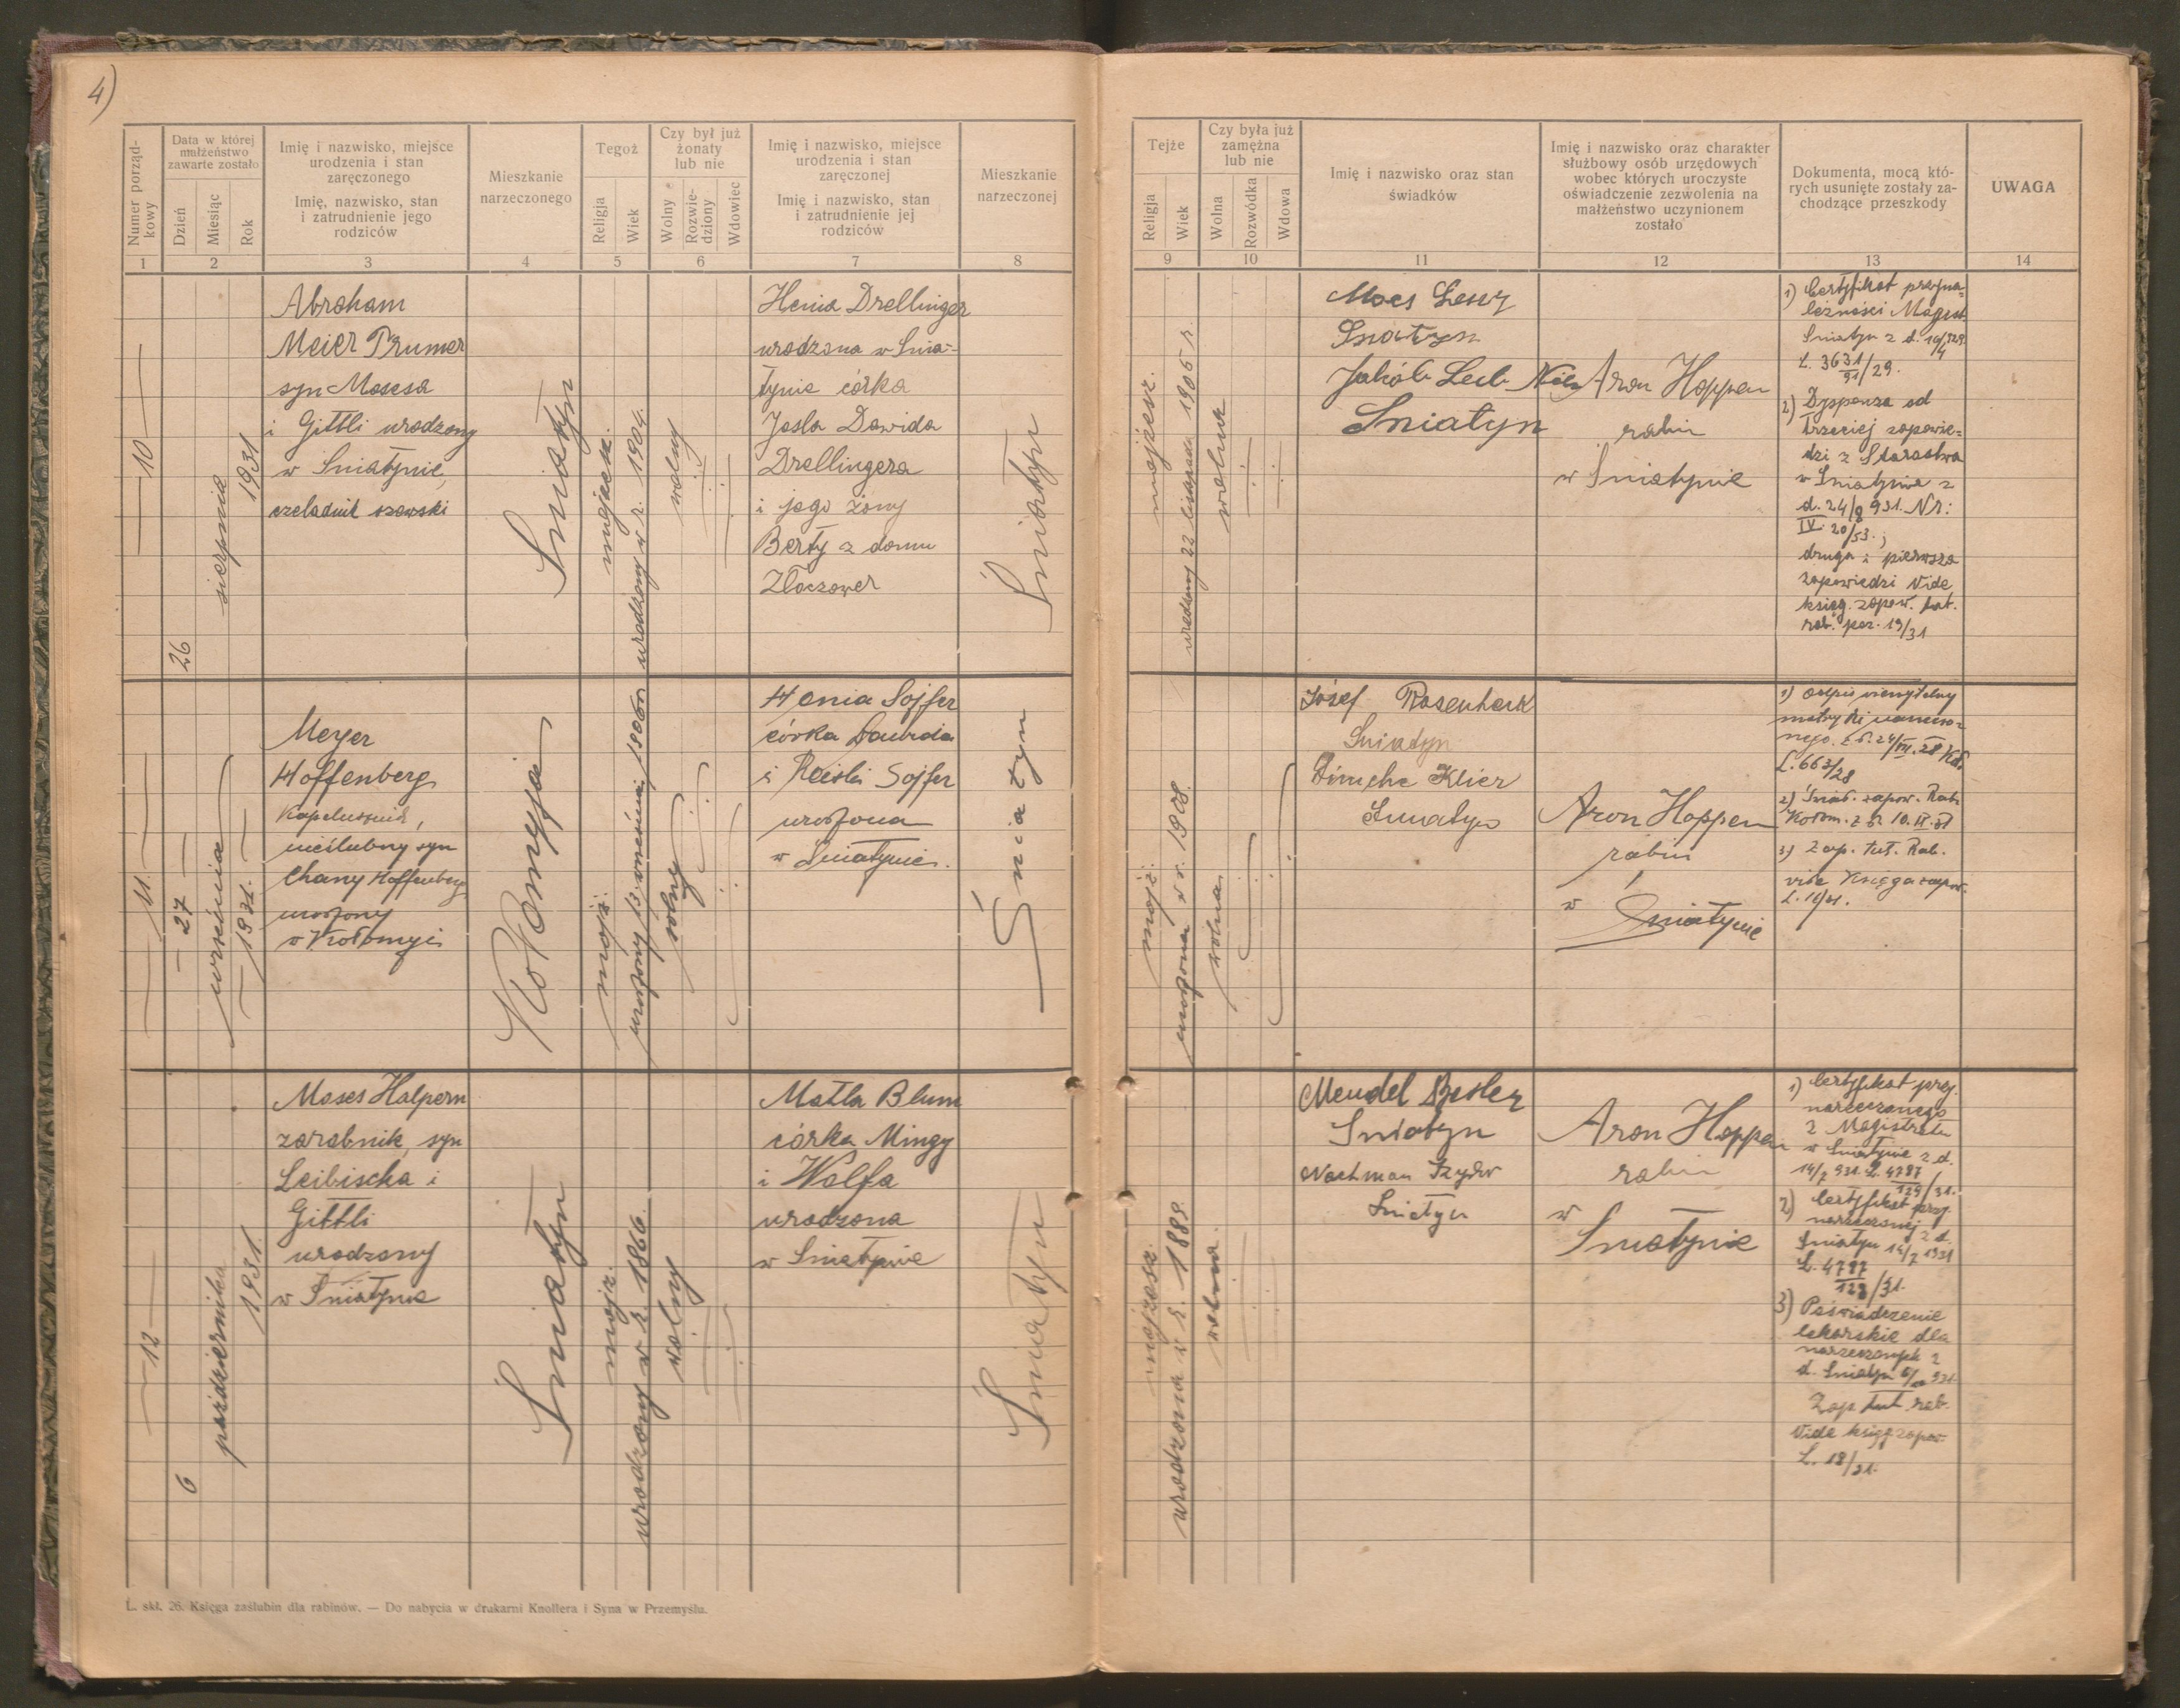 4)
Numer porząd-
kowy
Data w której
małżeństwo
zawarte zostało
Dzień
Miesiąc
Rok
Imię i nazwisko, miejsce
urodzenia i stan
zaręczonego
Imię, nazwisko, stan
i zatrudnienie jego
rodziców
Mieszkanie
narzeczonego
Tegoż
Religja
Wiek
Czy był już
żonaty
lub nie
Wolny
Rozwie-
dziony
Wdowiec
Imię i nazwisko, miejsce
urodzenia i stan
zaręczonej
Imię i nazwisko, stan
i zatrudnienie jej
rodziców
Mieszkanie
narzeczonej
Tejże
Religja
Wiek
Czy była już
zamężna
lub nie
Wolna
Rozwódka
Wdowa
Imię i nazwisko oraz stan
świadków
Imię i nazwisko oraz charakter
służbowy osób urzędowych
wobec których uroczyste
oświadczenie zezwolenia na
małżeństwo uczynionem
zostało
Dokumenta, mocą któ-
rych usunięte zostały za-
chodzące przeszkody
UWAGA
1 2 3 4 5 6 7 8 9 10 11 12 13 14
10
26
sierpnia
1931
Abraham
Meier Trumer
syn Mosesa
i Gittli urodzony
w Sniatynie,
czeladnik szewski
Śniatyn
mojżesz.
urodzony w r. 1904.
wolny
Henia Drellinger
urodzona w Snia-
tynie córka
Josla Dawida
Drellingera
i jego żony
Berty z domu
Złoczower
Śniatyn
mojżesz.
urodzony 22 listopada 1905 r.
wolna
Sniatyn
Jakób Leib
Sniatyn
Aron Hoppen
rabin
w Śniatynie
1) Certyfikat przyna-
leżności Magist.
Sniatyn z d. 10/4 929.
L. 3631/91/29.
2) Dyspensa od
trzeciej zapowie-
dzi z Starostwa
w Sniatynie z
d. 24/8 931. Nr:
IV. 20/53.;
druga i pierwsza
zapowiedzi Vide
księg. zapow. tut.
rab. poz. 19/31
11.
27
września
1931.
Meyer
Hoffenberg
Kapelusznik,
nieślubny syn
Chany Hoffenberg
urodzony
w Kołomyi
Kołomyja
mojż.
urodzony 13. września 1906 r.
wolny
Henia Sojfer
córka Dawida
i Reisli Sojfer
urodzona
w Śniatynie.
Śniatyn
mojż.
urodzona w r. 1908.
wolna.
Józef Rosenheck
Sniatyn
Klier
Sniatyn
Aron Hoppen
rabin
w
Śniatynie
1) Odpis wierzytelny
metryki narzeczo-
nego z d. 24/VII. 28
L. 663/28
zapow. Rab.
Kołom. z d. 10. IX. 31
3) Zap. tut. Rab.
vide Księga zapow.
12
6
października
1931.
Moses Halpern
zarobnik, syn
Leibischa i
Gittli
urodzony
w Śniatynie
Śniatyn
mojż.
urodzony w r. 1866.
wolny
Matla Blum
córka Mingy
i Wolfa
urodzona
w Sniatynie
Śniatyn
mojżesz.
urodzona w r. 1889.
wolna.
Mendel
Sniatyn
Nachman
Śniatyn
Aron Hoppen
rabin
w
Śniatynie
1) Certyfikat przy.
narzeczonego
z Magistratu
w Śniatynie z d.
14/7 931. L. 4787/129/31.
2) Certyfikat przy.
narzeczonej z d.
Śniatyn 14/7 1931
L. 4787/128/31.
3) Poświadczenie
lekarskie dla
narzeczonych z
d. Śniatyn
Zap. tut. rab.
Vide księg zapow.
L. 18/31.
L. skł. 26. Księga zaślubin dla rabinów. — Do nabycia w drukarni Knollera i Syna w Przemyślu.